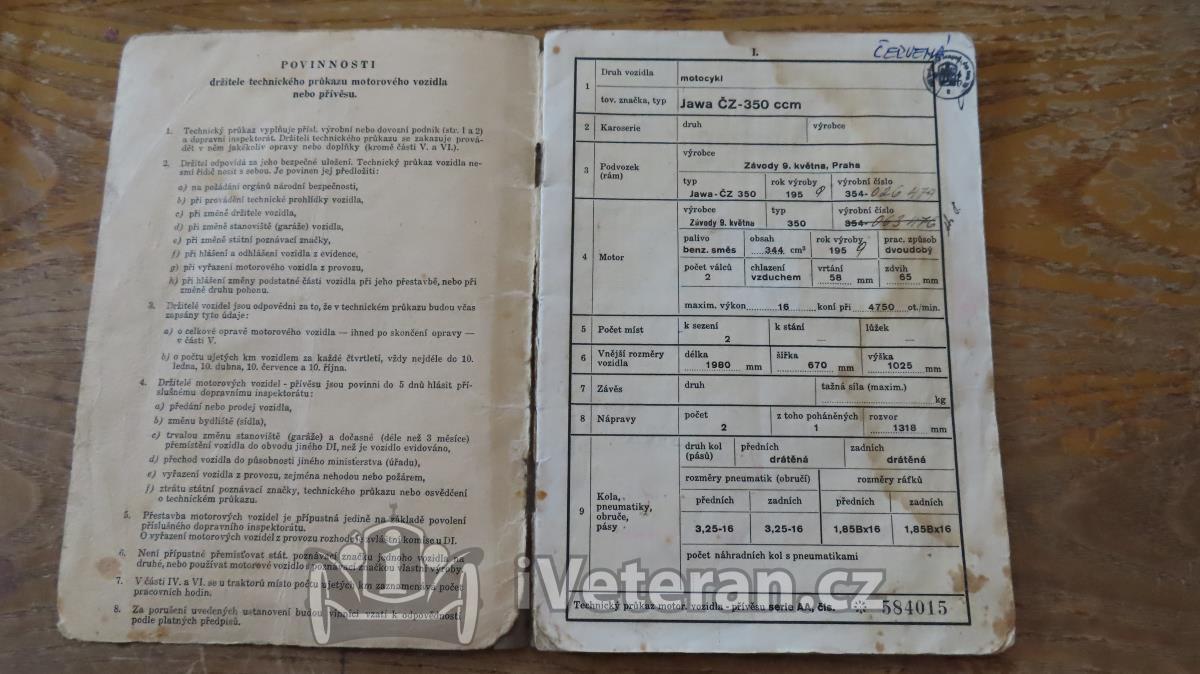 POVINNOSTI
držitele technického průkazu motorového vozidla
nebo přívěsu.
1. Technický průkaz vyplňuje přísl. výrobní nebo dovozní podnik (str. 1 a 2)
a dopravní inspektorát. Držiteli technického průkazu se zakazuje prová-
dět v něm jakékoliv opravy nebo doplňky (kromě části V. a VI.).
2. Držitel odpovídá za jeho bezpečné uložení. Technický průkaz vozidla ne-
smí řidič nosit s sebou. Je povinen jej předložiti:
a) na požádání orgánů národní bezpečnosti,
b) při provádění technické prohlídky vozidla,
c) při změně držitele vozidla,
d) při změně stanoviště (garáže) vozidla,
e) při změně státní poznávací značky,
f) při hlášení a odhlášení vozidla z evidence,
g) při vyřazení motorového vozidla z provozu,
h) při hlášení změny podstatné části vozidla při jeho přestavbě, nebo při
změně druhu pohonu.
3. Držitelé vozidel jsou odpovědni za to, že v technickém průkazu budou včas
zapsány tyto údaje:
a) o celkové opravě motorového vozidla — ihned po skončení opravy —
v části V.
b) o počtu ujetých km vozidlem za každé čtvrtletí, vždy nejdéle do 10.
ledna, 10. dubna, 10. července a 10. října.
4. Držitelé motorových vozidel - přívěsu jsou povinni do 5 dnů hlásit pří-
slušnému dopravnímu inspektorátu:
a) předání nebo prodej vozidla,
b) změnu bydliště (sídla),
c) trvalou změnu stanoviště (garáže) a dočasné (déle než 3 měsíce)
přemístění vozidla do obvodu jiného DI, než je vozidlo evidováno,
d) přechod vozidla do působnosti jiného ministerstva (úřadu),
e) vyřazení vozidla z provozu, zejména nehodou nebo požárem,
f) ztrátu státní poznávací značky, technického průkazu nebo osvědčení
o technickém průkazu.
5. Přestavba motorových vozidel je přípustná jedině na základě povolení
příslušného dopravního inspektorátu.
O vyřazení motorových vozidel z provozu rozhoduje zvláštní komise u DI.
6. Není přípustné přemisťovat stát. poznávací značku jednoho vozidla na
druhé, nebo používat motorové vozidlo s poznávací značkou vlastní výroby.
7. V části IV. a VI. se u traktorů místo počtu ujetých km zaznamenává počet
pracovních hodin.
8. Za porušení uvedených ustanovení budou viníci vzati k odpovědnosti
podle platných předpisů.
I. ČERVENÁ
1 Druh vozidla motocykl
tov. značka, typ Jawa ČZ-350 ccm
2 Karoserie druh výrobce
3 Podvozek (rám) výrobce
Závody 9. května, Praha
typ rok výroby výrobní číslo
Jawa-ČZ 350 1959 354-026 479
4 Motor výrobce typ výrobní číslo
Závody 9. května 350 354-063 476
palivo obsah rok výroby prac. způsob
benz. směs 344 cm³ 1959 dvoudobý
počet válců chlazení vrtání zdvih
2 vzduchem 58 mm 65 mm
maxim. výkon 16 koní při 4750 ot./min.
5 Počet míst k sezení k stání lůžek
2 — —
6 Vnější rozměry vozidla délka šířka výška
1980 mm 670 mm 1025 mm
7 Závěs druh tažná síla (maxim.)
kg
8 Nápravy počet z toho poháněných rozvor
2 1 1318 mm
9 Kola, pneumatiky, obruče, pásy
druh kol (pásů) předních zadních
drátěná drátěná
rozměry pneumatik (obručí) rozměry ráfků
předních zadních předních zadních
3,25-16 3,25-16 1,85Bx16 1,85Bx16
počet náhradních kol s pneumatikami
Technický průkaz motor. vozidla - přívěsu serie AA, čís. 584015
iVeteran.cz